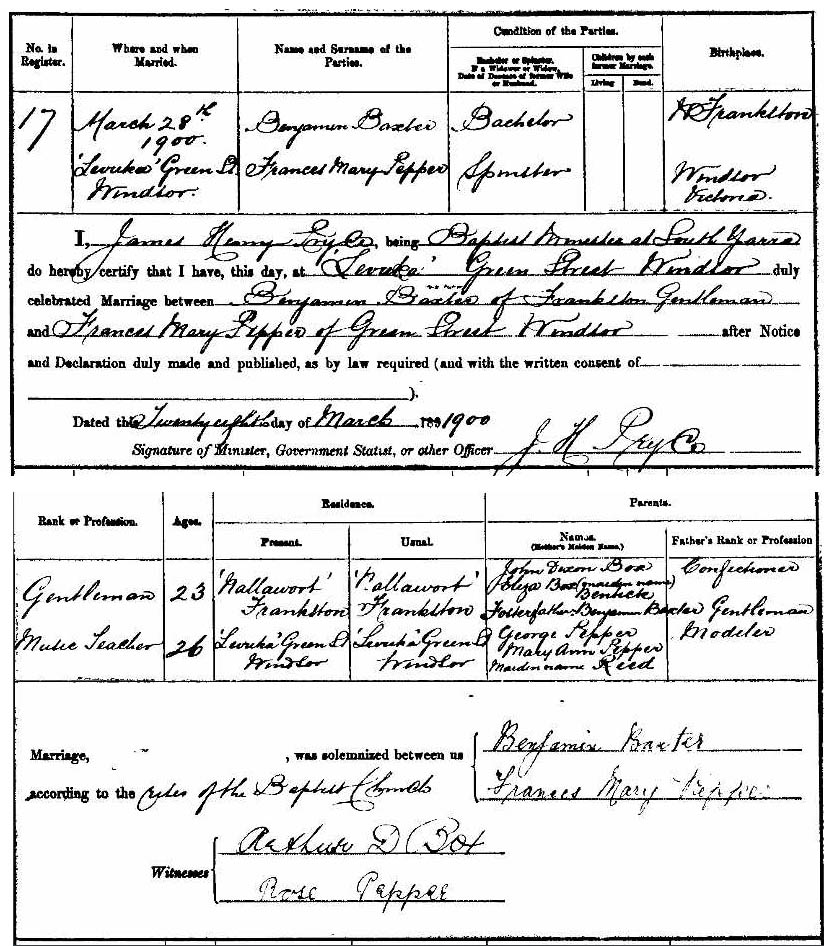 No. in Register.
Where and when Married.
Name and Surname of the Parties.
Condition of the Parties.
Bachelor or Spinster. If a Widower or Widow, Date of Decease of former Wife or Husband.
Children by each former Marriage.
Living
Dead.
Birthplace.
17
March 28th
1900.
'Levuka' Green St.
Windsor.
Benjamin Baxter
Frances Mary Pepper
Bachelor
Spinster
Frankston
Windsor
Victoria.
I, James Henry, being Baptist Minister at South Yarra
do hereby certify that I have, this day, at 'Levuka' Green Street Windsor duly
celebrated Marriage between Benjamin Baxter of Frankston Gentleman
and Frances Mary Pepper of Green Street Windsor after Notice
and Declaration duly made and published, as by law required (and with the written consent of
).
Dated this Twenty eighth day of March 189 1900
Signature of Minister, Government Statist, or other Officer J. H.
Rank or Profession.
Ages.
Residence.
Present.
Usual.
Parents.
Names. (Mother's Maiden Name.)
Father's Rank or Profession
Gentleman
23
'Nallawort'
Frankston
'Nallawort'
Frankston
John Dixon Box
Eliza Box (maiden name)
Fosterfather Benjamin Baxter
Confectioner
Gentleman
Music Teacher
26
'Levuka' Green St
Windsor
'Levuka' Green St
Windsor
George Pepper
Mary Ann Pepper
Maiden name Reed
Modeler
Marriage, , was solemnized between us
according to the rites of the Baptist Church
Benjamin Baxter
Frances Mary Pepper
Witnesses
Arthur D Box
Rose Pepper